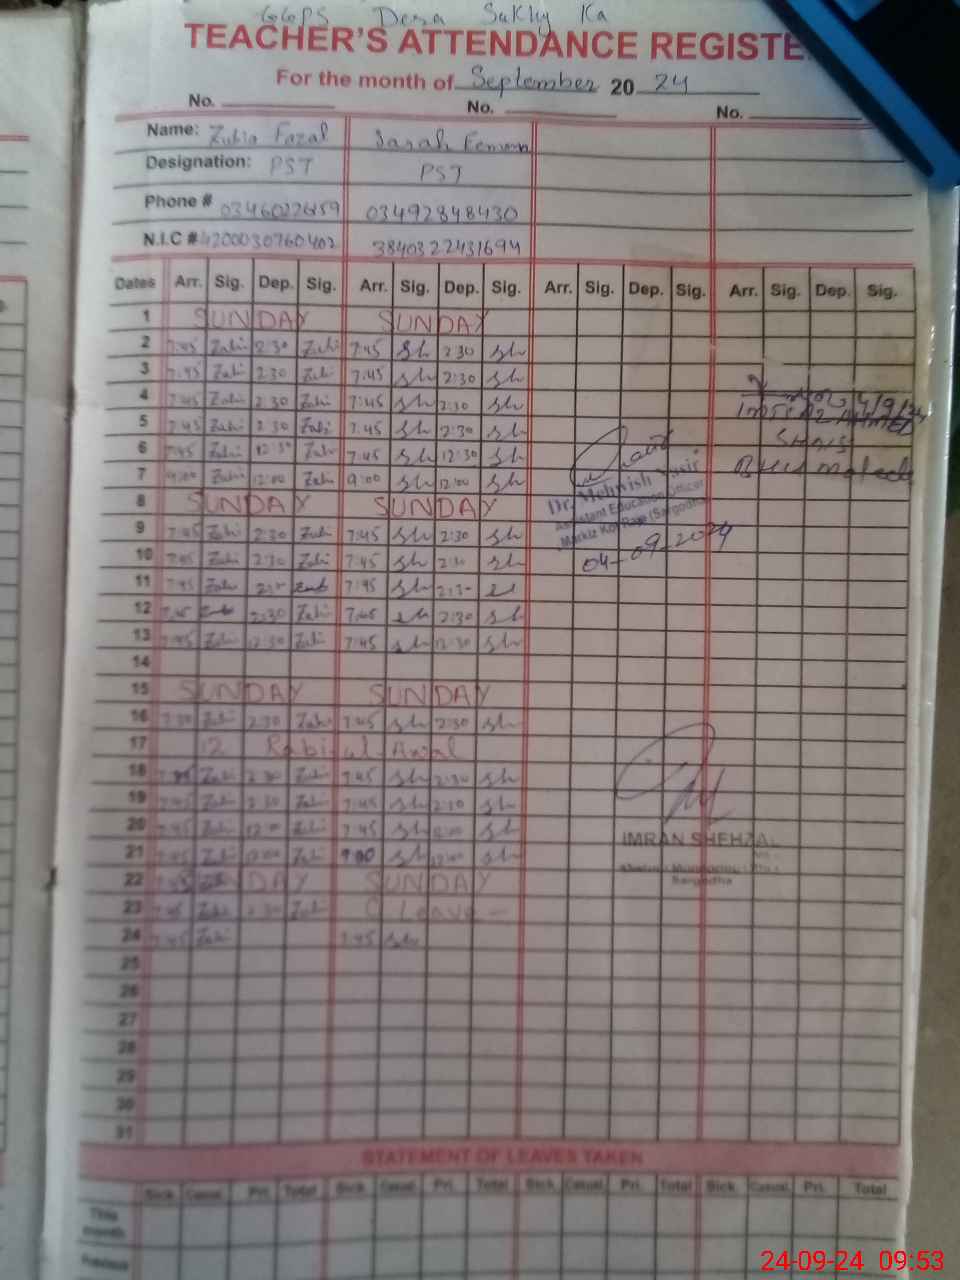 GGPS Dera Sukhy Ka
TEACHER'S ATTENDANCE REGISTE
For the month of September 20 24
No. No. No.
Name: Zubia Fazal Sarah
Designation: PST PST
Phone # 03492848430
N.I.C # 4200030760402 3840322431694
Dates Arr. Sig. Dep. Sig. Arr. Sig. Dep. Sig. Arr. Sig. Dep. Sig. Arr. Sig. Dep. Sig.
1 SUNDAY SUNDAY
2 7:45 Zubi 2:30 Zubi 7:45 Sh 2:30 Sh
3 7:45 Zubi 2:30 Zubi 7:45 Sh 2:30 Sh
4 7:45 Zubi 2:30 Zubi 7:45 Sh 2:30 Sh
5 7:45 Zubi 2:30 Zubi 7:45 Sh 2:30 Sh
6 7:45 Zubi 12:30 Zubi 7:45 Sh 12:30 Sh
7 9:00 Zubi 12:00 Zubi 9:00 Sh 12:00 Sh
8 SUNDAY SUNDAY
Dr. Mehwish Yasir
Assistant Education Officer
(Sargodha)
04-09-2024
9 7:45 Zubi 2:30 Zubi 7:45 Sh 2:30 Sh
10 7:45 Zubi 2:30 Zubi 7:45 Sh 2:30 Sh
11 7:45 Zubi 2:30 7:45 Sh 2:30
12 7:45 2:30 Zubi 7:45 Sh 2:30 Sh
13 7:45 Zubi 12:30 Zubi 7:45 Sh 12:30 Sh
14
15 SUNDAY SUNDAY
16 7:30 Zubi 2:30 Zubi 7:45 Sh 2:30 Sh
17 12 Rabi-ul-Awal
18 7:45 Zubi 2:30 Zubi 7:45 Sh 2:30 Sh
19 7:45 Zubi 2:30 Zubi 7:45 Sh 2:30 Sh
20 7:45 Zubi Zubi 7:45 Sh Sh
IMRAN SHEHZAD
21 7:45 Zubi 12:00 Zubi 9:00 Sh 12:00 Sh
Sargodha
22 SUNDAY SUNDAY
23 7:45 Zubi 2:30 Zubi C Leave
24 7:45 Zubi 7:45 Sh
25
26
27
28
29
30
31
STATEMENT OF LEAVES TAKEN
Sick Casual Pri. Total Sick Casual Pri. Total Sick Casual Pri. Total Sick Casual Pri. Total
This month
Previous
24-09-24 09:53